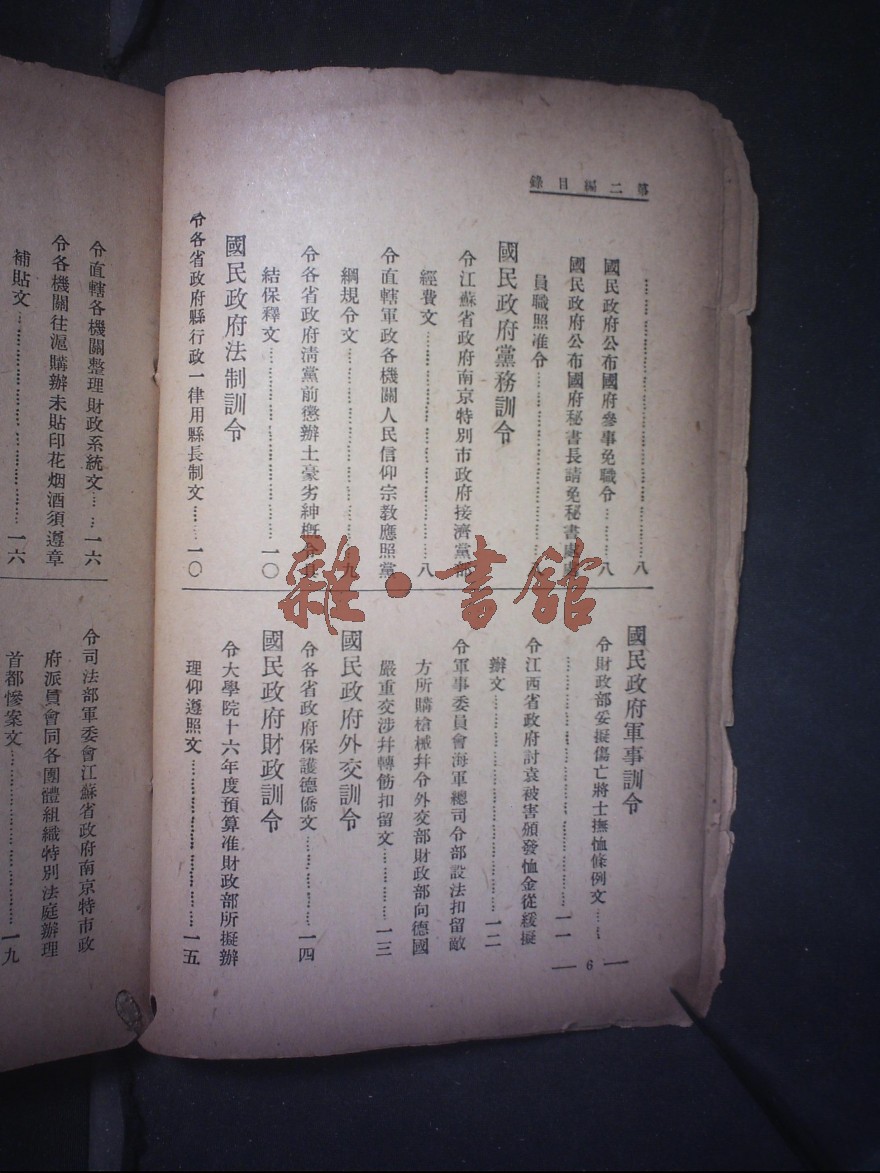 第二編目錄
………………………………八
國民政府公布國府參事免職令………八
國民政府公布國府秘書長請免秘書處處
員職照准令………………八
國民政府黨務訓令
令江蘇省政府南京特別市政府接濟黨部
經費文………………………八
令直轄軍政各機關人民信仰宗教應照黨
綱規令文………………………九
令各省政府清黨前懲辦土豪劣紳概令具
結保釋文………………………一〇
國民政府法制訓令
令各省政府縣行政一律用縣長制文……一〇
國民政府軍事訓令
令財政部妥擬傷亡將士撫恤條例文……
………………………………一一
令江西省政府討袁被害頒發恤金從緩擬
辦文………………………一二
令軍事委員會海軍總司令部設法扣留敵
方所購槍械幷令外交部財政部向德國
嚴重交涉幷轉飭扣留文………一三
國民政府外交訓令
令各省政府保護德僑文…………一四
國民政府財政訓令
令大學院十六年度預算准財政部所擬辦
理仰遵照文………………………一五
6
令直轄各機關整理財政系統文……一六
令各機關往滬購辦未貼印花烟酒須遵章
補貼文………………………一六
令司法部軍委會江蘇省政府南京特市政
府派員會同各團體組織特別法庭辦理
首都慘案文………………………一九
雜·書館